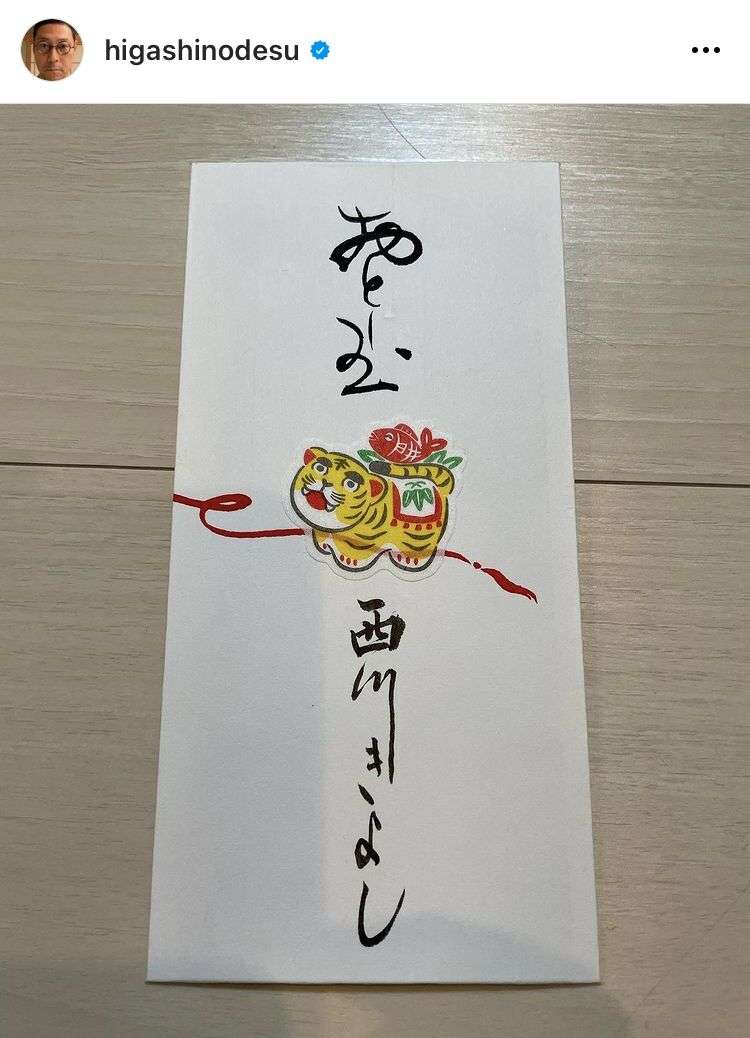 higashinodesu
お年玉
西川きよし